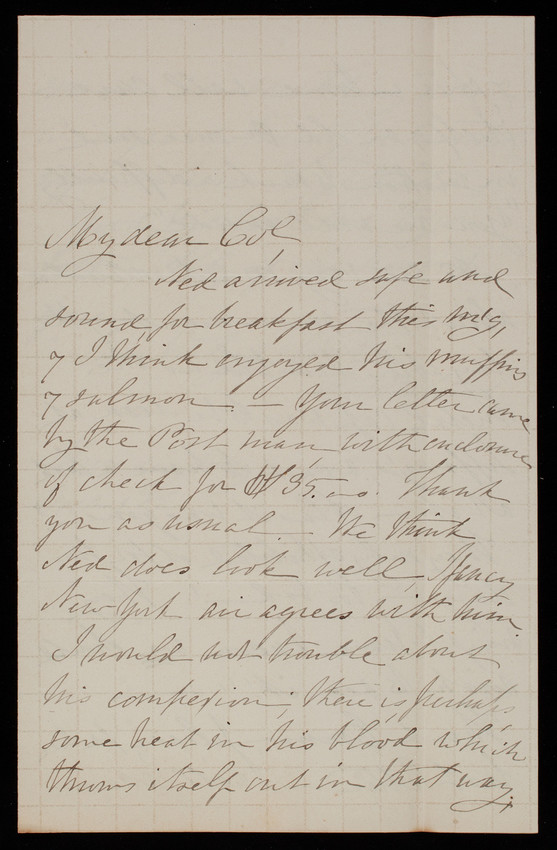 My dear Col,
Ned arrived safe and
sound for breakfast this m'g,
& I think enjoyed his muffins
& salmon. — Your letter came
by the Post man, with enclosure
of check for $35. as. Thank
you as usual. We think
Ned does look well, I fancy
New York air agrees with him
I would not trouble about
his compexion; there is perhaps
some heat in his blood which
throws itself out in that way,